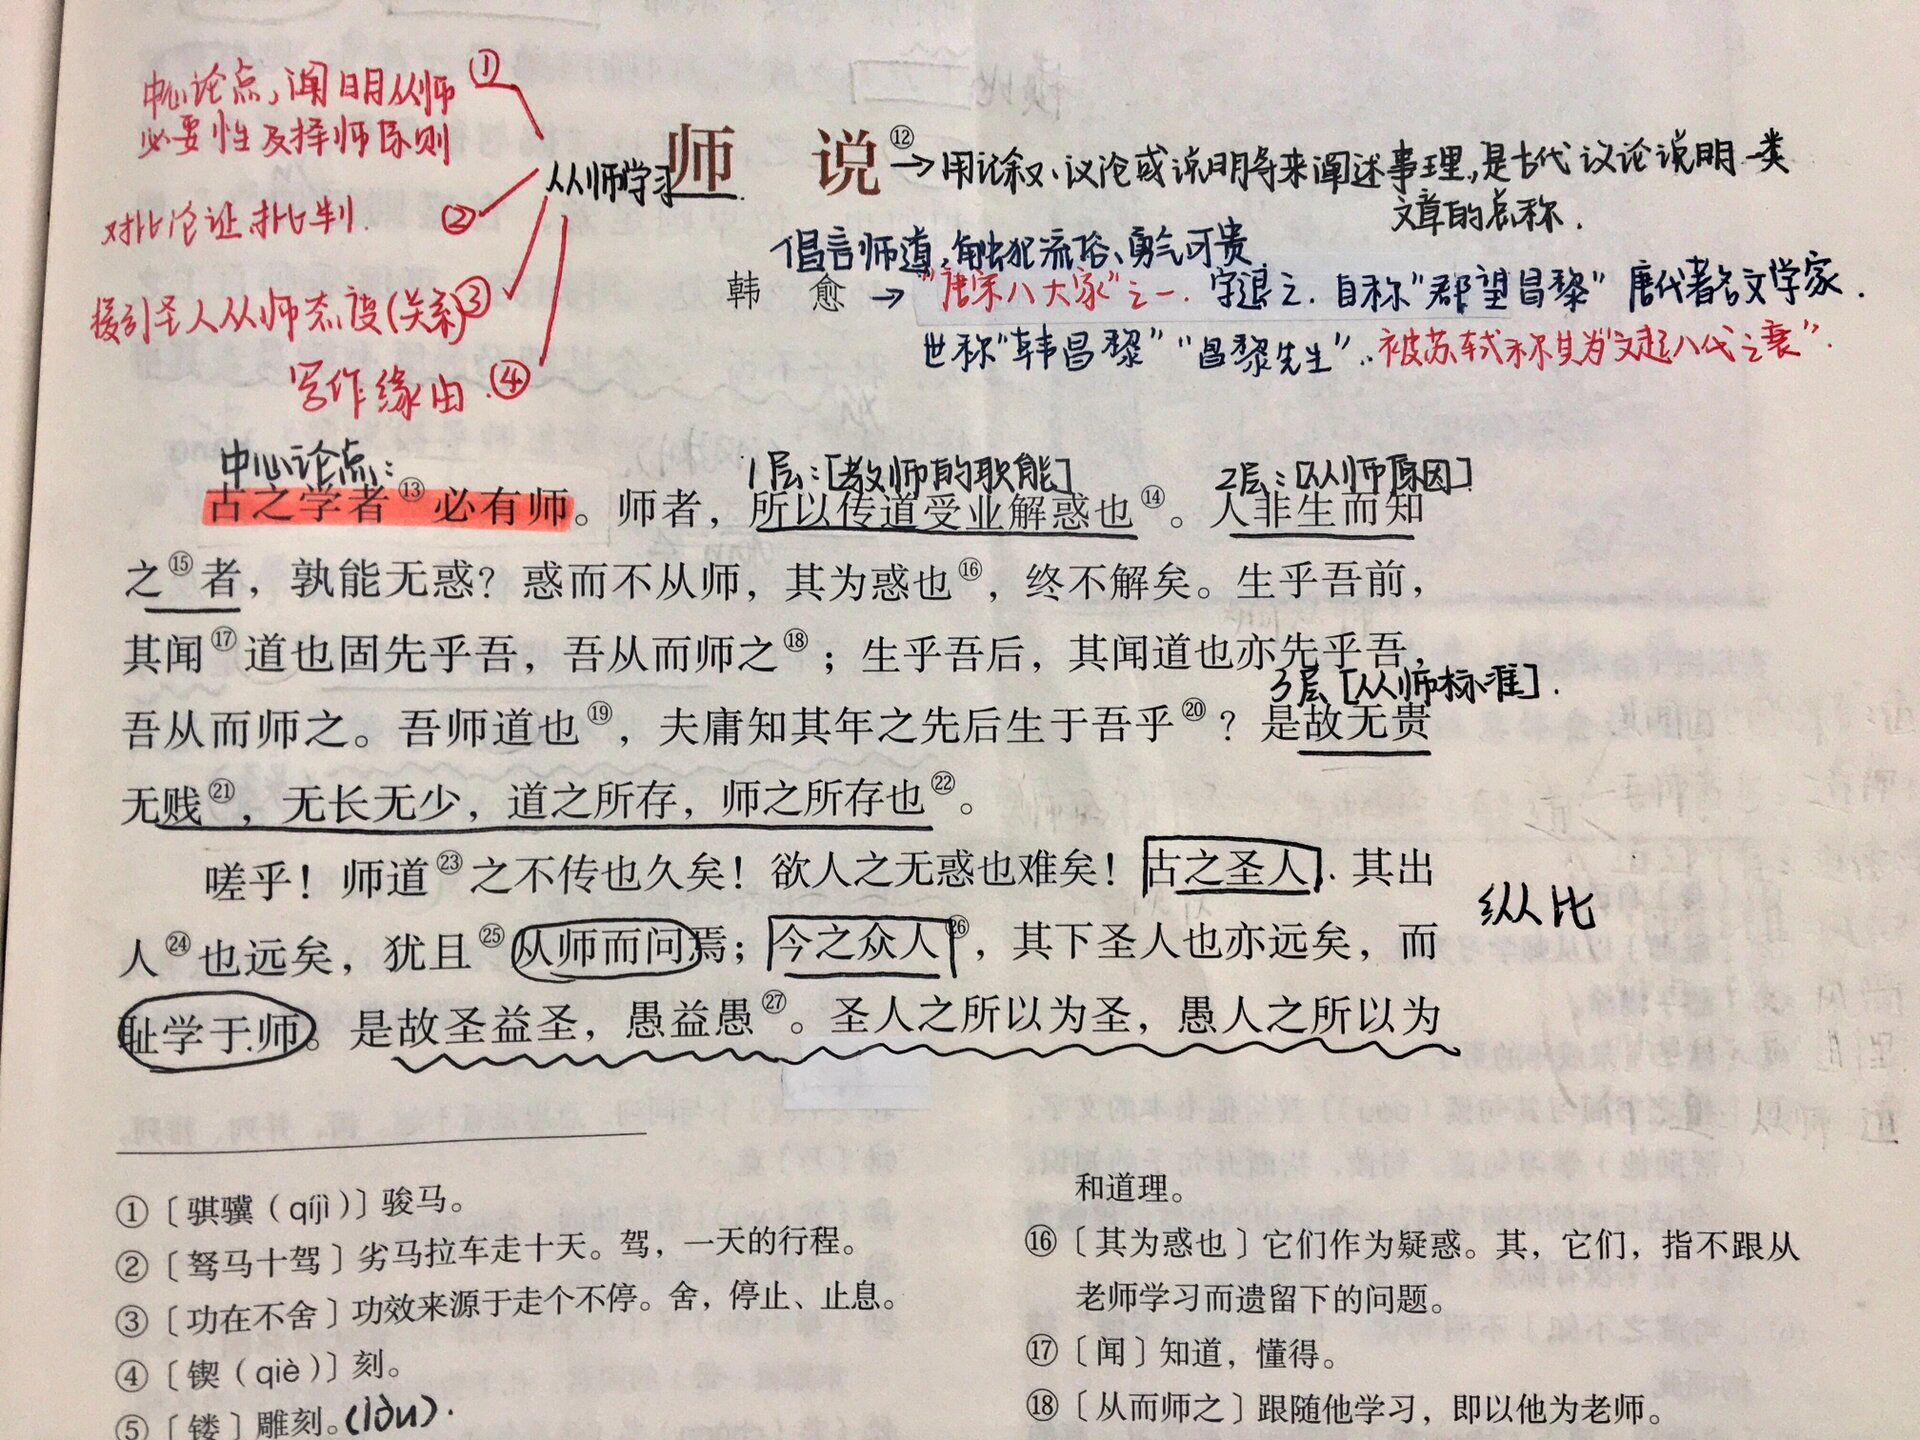 中心论点，阐明从师 ①
必要性及择师原则
从师学习
对比论证批判. ②
援引圣人从师态度(关系)③
写作缘由.④
师 说⑫
→用记叙、议论或说明等来阐述事理，是古代议论说明一类
文章的总称.
倡言师道，触犯流俗、勇气可贵
韩 愈 → “唐宋八大家”之一. 字退之. 自称“郡望昌黎” 唐代著名文学家.
世称“韩昌黎”“昌黎先生”. 被苏轼称其为“文起八代之衰”.
中心论点：
1层：[教师的职能]
2层：[从师原因]
古之学者⑬必有师。师者，所以传道受业解惑也⑭。人非生而知
之⑮者，孰能无惑？惑而不从师，其为惑也⑯，终不解矣。生乎吾前，
其闻⑰道也固先乎吾，吾从而师之⑱；生乎吾后，其闻道也亦先乎吾，
3层[从师标准].
吾从而师之。吾师道也⑲，夫庸知其年之先后生于吾乎⑳？是故无贵
无贱㉑，无长无少，道之所存，师之所存也㉒。
嗟乎！师道㉓之不传也久矣！欲人之无惑也难矣！古之圣人，其出
人㉔也远矣，犹且㉕从师而问焉；今之众人㉖，其下圣人也亦远矣，而
纵比
耻学于师。是故圣益圣，愚益愚㉗。圣人之所以为圣，愚人之所以为
①〔骐骥（qíjì）〕骏马。
②〔驽马十驾〕劣马拉车走十天。驾，一天的行程。
③〔功在不舍〕功效来源于走个不停。舍，停止、止息。
④〔锲（qiè）〕刻。
⑤〔镂〕雕刻。(lòu).
和道理。
⑯〔其为惑也〕它们作为疑惑。其，它们，指不跟从
老师学习而遗留下的问题。
⑰〔闻〕知道，懂得。
⑱〔从而师之〕跟随他学习，即以他为老师。